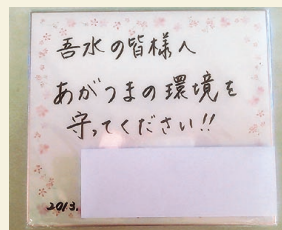 吾水の皆様へ
あがつまの環境を
守ってください!!
2013.